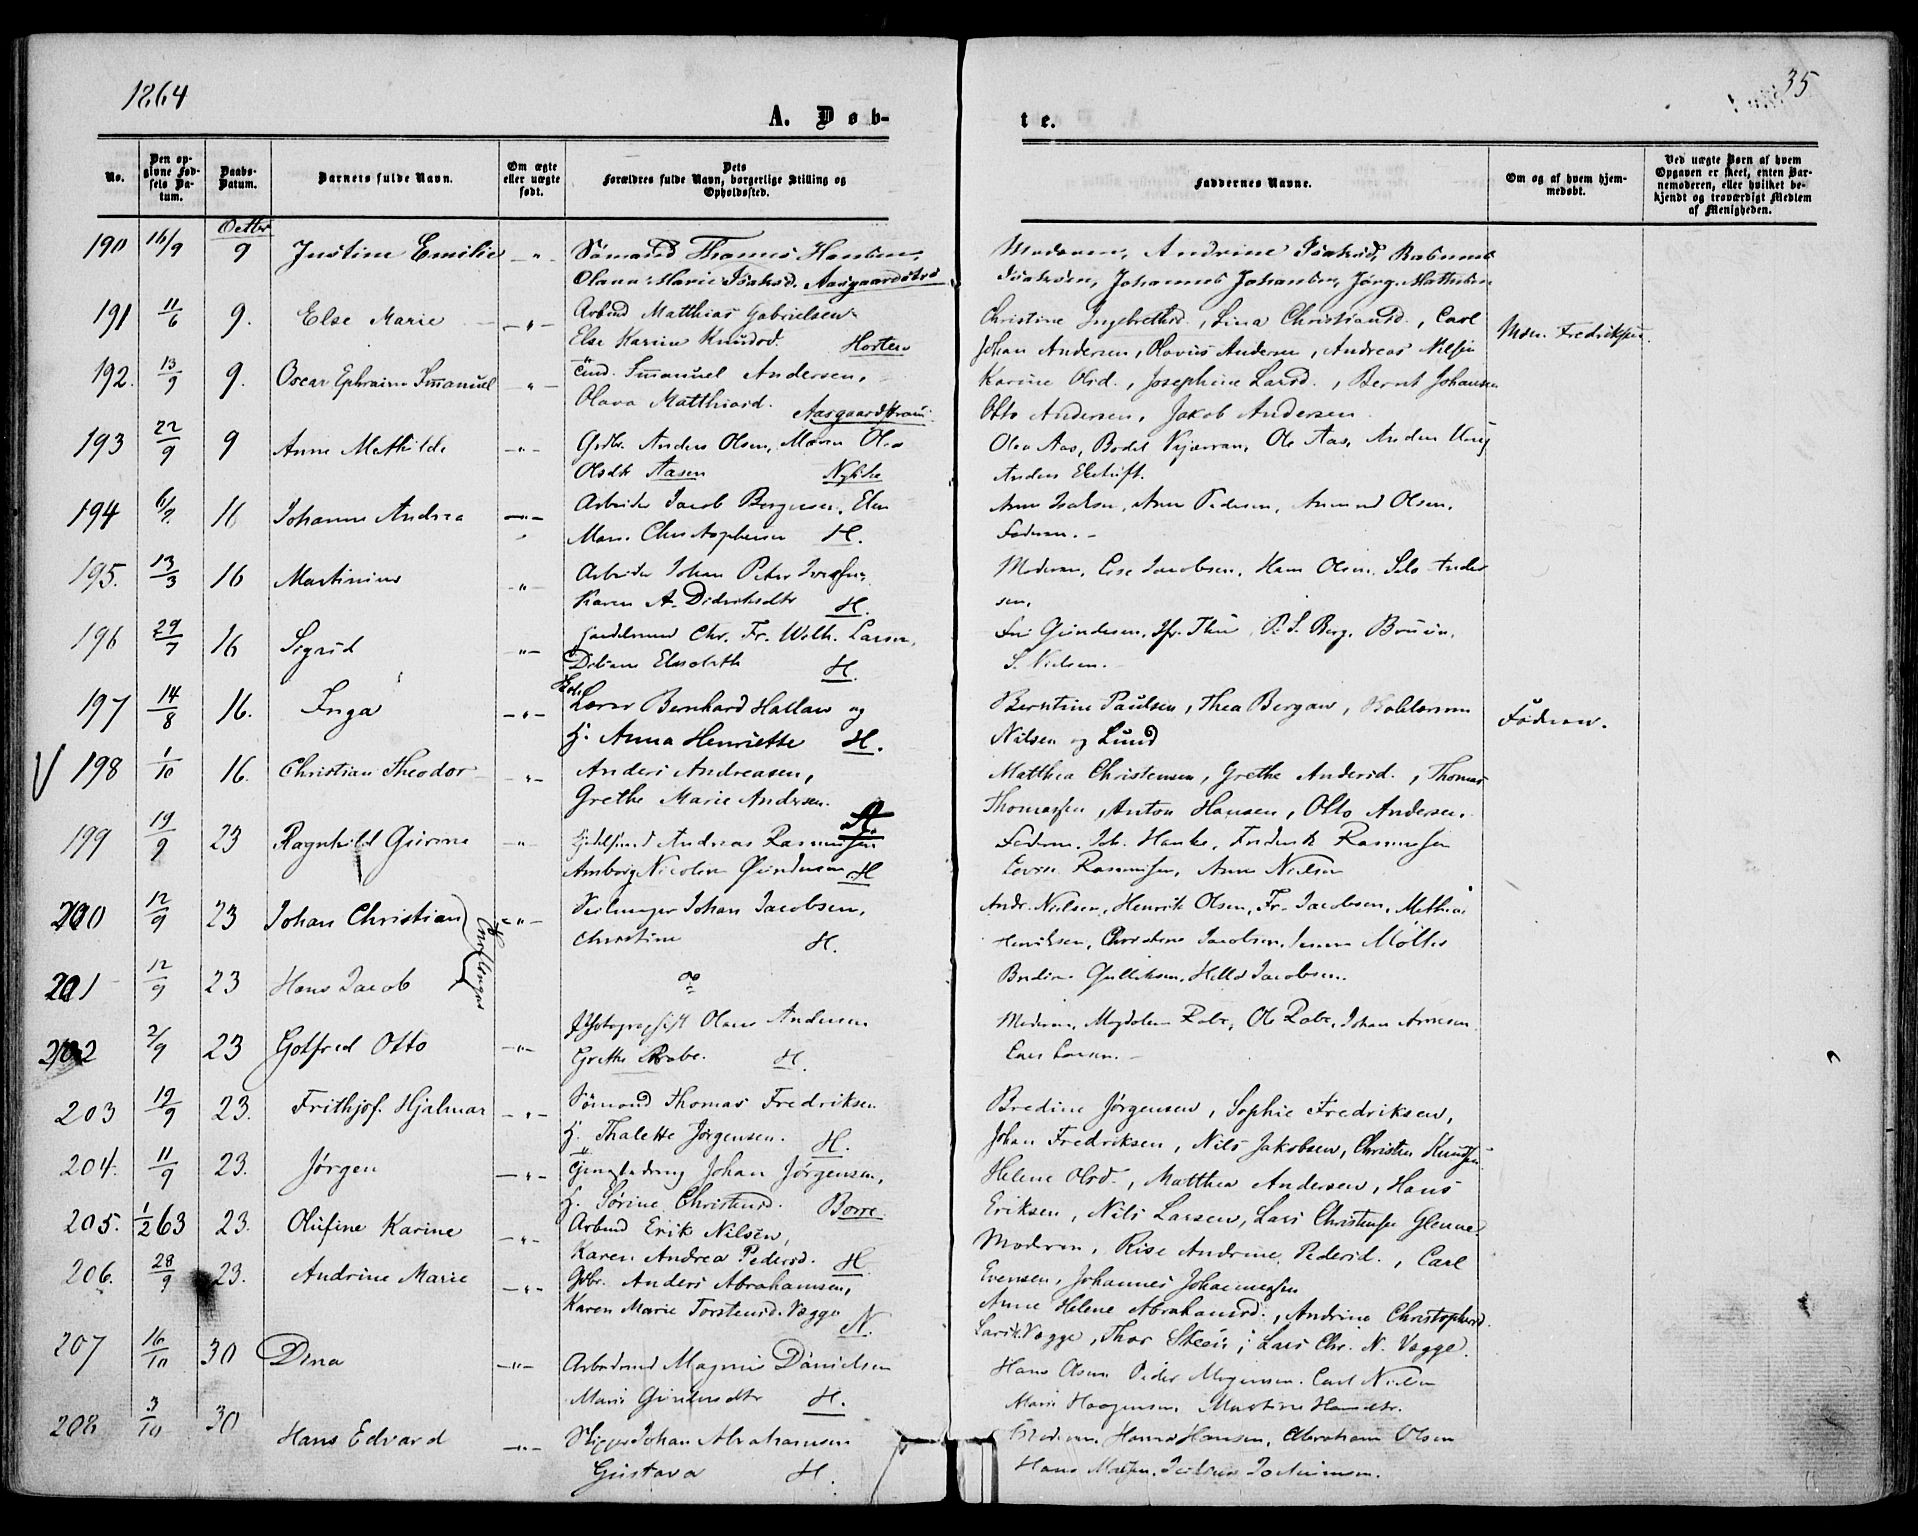 1864
35
A. Døb-
te.
No.
Den opgivne Fødsels Datum.
Daabs-Datum.
Barnets fulde Navn.
Om ægte eller uægte født.
Dets Forældres fulde Navn, borgerlige Stilling og Opholdssted.
Faddernes Navne.
Om og af hvem hjemmedøbt.
Ved uægte Børn af hvem Opgaven er skeet, enten Barnemoderen, eller hvilket bekjendt og troværdigt Medlem af Menigheden.
Octbr
190 16/9 9 Justine Emilie —"— Sömand Thomas Hansen, Moderen, Andrine Isaksd, Rasmus
Olava Marie Isaksd. Aasgaardstrd Isaksen, Johannes Johansen, Jørg. Mathisen
191 11/6 9. Else Marie —"— Arbmd Matthias Gabrielsen Christine Ingebrethsd., Lina Christiansd., Carl
Else Karine Knudsd. Horten Johan Andersen, Olavus Andersen, Andreas Nilsen Mdm. Fredriksen
192. 13/9 9. Oscar Ephraim Immanuel —"— Immanuel Andersen, Karine Olsd., Josephine Larsd., Bernt Johansen
Olava Matthiasd. Otto Andersen, Jakob Andersen
193 22/9 9 Anne Mathilde —"— Grdbr. Anders Olsen, Maren Olea Olea Aas, Bodel Ole Aas, Anders
Olsdtr Aasen Nykirke Anders
194 6/7 16 Johanne Andrea —"— Arbeider Jacob Borgersen, Elen Anne Isaksen, Anne Pedersen, Amund Olsen,
Mar. Christophersen H. Faderen.
195. 13/3 16 Martinius —"— Arbeider Johan Peter Iversen, Moderen, Lise Jacobsen, Hans Olsen, Ander
Karen A. Didriksdtr H. sen.
196 29/7 16 Sigrid —"— Handelsmd Chr. Fr. Wilh. Larsen, Gundersen, P. S. Berg, Bruun,
Elisabeth H. S. Nielsen.
197 14/8 16. Inga —"— Lærer Bernhard Hallaw og Berntine Paulsen, Thea Bergan,
H. Anna Henriette H. Nilsen og Lund Faderen.
V 198 1/10 16. Christian Theodor —"— Anders Andreasen, Matthea Christensen, Grethe Andersd., Thomas
Grethe Marie Andersen. Thomassen, Anton Hansen, Otto Andersen.
199 19/9 23 Ragnhild Gurine —"— Andreas Rasmussen Faderen, Joh. Hanke, Frederik Rasmussen
Amborg Nicoline Gundersen H Rasmussen, Anne Nielsen
200 12/9 23 Johan Christian —"— Seilmager Johan Jacobsen, Andr. Nielsen, Henrik Olsen, Fr. Jacobsen, Mathias
Christine H. Henriksen, Christine Jacobsen, Møller
Tvillinger
201 12/9 23 Hans Jacob do Gulliksen, Jacobsen.
202 2/9 23 Gotfred Otto —"— Photograph Olaus Andersen Moderen, Magdalene Rabe, Ole Rabe, Johan Arnesen
Grethe Rabe. H. Lars Larsen.
203 19/9 23. Frithjof Hjalmar —"— Sömand Thomas Fredriksen Bredine Jørgensen, Sophie Fredriksen,
H. Thalette Jørgensen. H. Johan Fredriksen, Nils Jakobsen, Christen Knudsen
204. 11/9 23. Jørgen —"— Johan Jørgensen, Helene Olsd., Matthea Andersen, Hans
H. Sørine Christensd. Borre Eriksen, Nils Larsen, Lars Christensen Glenne
205. 1/2 63 23. Olufine Karine —"— Arbmd Erik Nilsen, Moderen, Rise Andrine Pedersd., Carl
Karen Andrea Pedersd. H. Evensen, Johannes Johannessen
206. 28/9 23. Andrine Marie —"— Gdbr. Anders Abrahamsen, Anne Helene Abrahamsd., Andrine Christophersd.
Karen Marie Torstensd. Vegge N. Vegge, Thor Steen, Lars Chr. N. Vegge.
207 16/10 30 Dina —"— Arbeidsmd Magnus Danielsen Hans Olsen Peder Mogensen, Carl Nielsen
Marie Gundersdtr H. Marie Haagensen, Martine Hansdtr.
208 3/10 30 Hans Edvard —"— Skipper Johan Abrahamsen Moderen, Hanna Hansen, Abraham Olsen
Gustava H. Hans Jochimsen.